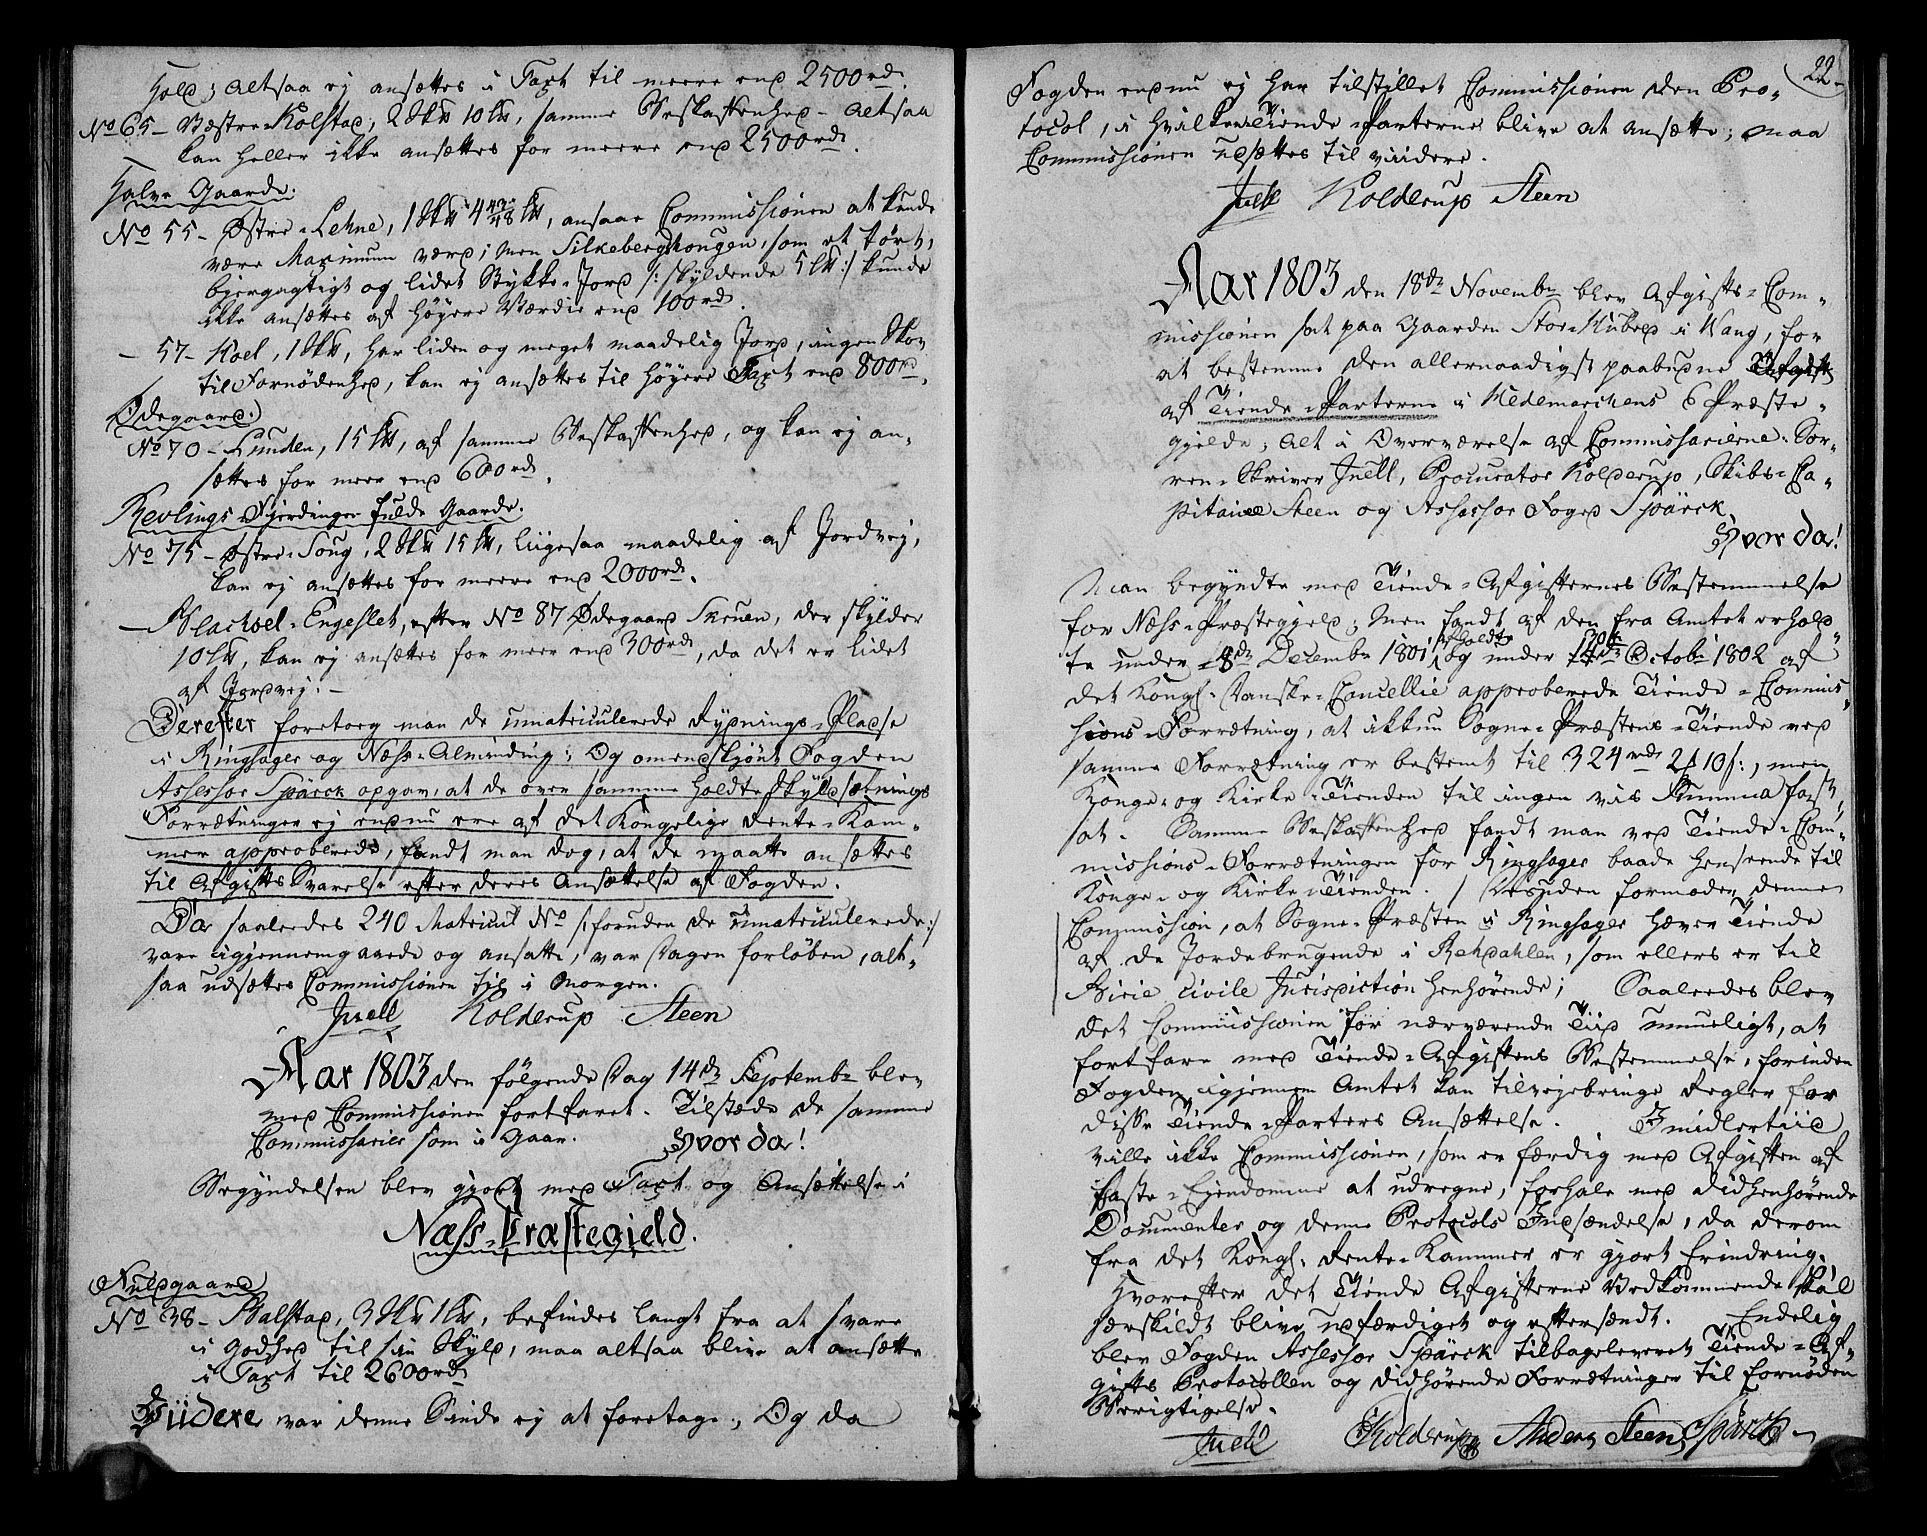 hold; altsaa ej ansættes i Taxt til meere end 2500rd.
No 65 - Vestre-Kolstad, 2 Skr 10 lb, samme Beskaffenhed - altsaa
kan heller ikke ansættes for meere end 2500rd.
Halve Gaarde.
No 55 - Østre-Lehne, 1 Skr 4 43/48 lb, ansaae Commissionen at kunde
være Maximum værd; men Silkebergshougen, som et tørt,
bjergagtigt og lidet Stykke-Jord /: skyldende 5 lb :/ kunde
ikke ansættes af høyere Værdie end 100rd.
- 57 - Koel, 1 Skr, har liden og meget maadelig Jord, ingen Skov
til Fornødenhed, kan ej ansættes til høyere Taxt end 800rd.
Ødegaard.
No 70 - Lunden, 15 lb, af samme Beskaffenhed, og kan ej an-
sættes for meer end 600rd.
Revlings-Fjerdinger fulde Gaarde.
No 75 - Østre-Soug, 2 Skr 15 lb, liigesaa maadelig af Jordvej,
kan ej ansættes for meere end 2000rd.
- Engeslet, efter No 87 Ødegaard Skruen, der skylder
10 lb, kan ej ansættes for meer end 300rd, da det er lidet
af Jordvej. -
Derefter foretoeg man de umatriculerede Rydnings-Pladse
i Ringsager og Næss-Alminding; Og omendskjønt Fogden
Assessor Spärck opgav, at de over samme holdte Skyldsætnings
Forrætninger ej endnu ere af det Kongelige Rente-Kam-
mer approberede, fandt man dog, at de maatte ansættes
til Afgifts Svarelse efter deres Ansættelse af Fogden.
Da saaledes 240 Matricul No /: foruden de umatriculerede :/
vare igjennemgaaede og ansatte, var Dagen forløben, alt-
saa udsættes Commissionen til i Morgen.
Juell Kolderup Steen
Aar 1803 den følgende Dag 14de Septembr blev
med Commissionen fortfaret. Tilstede de samme
Commissarier som i Gaar. Hvor da!
Begyndelsen blev gjort med Taxt og Ansættelse i
Næss-Præstegield.
Fuldgaard
No 38 - Balstad, 3 Skr 1 lb, befindes langt fra at svare
i Godhed til sin Skyld, maa altsaa blive at ansætte
i Taxt til 2600rd
Viidere var denne Sinde ej at foretage, Og da
22
Fogden endnu ej har tilstillet Commissionen den Pro-
tocol, i hvilken Tiende-Parterne blive at ansætte; maa
Commissionen udsættes til viidere.
Juell Kolderup Steen
Aar 1803 den 18de Novembr blev Afgifts-Com-
missionen sat paa Gaarden Stor-Kuberd i Wang, for
at bestemme den allernaadigst paabudne Afgift
af Tiende-Parterne i Hedemarchens 6 Præste-
gjelde; alt i Overværelse af Commissarierne: Sor-
ren-Skriver Juell, Procurator Kolderup, Skibs-Ca-
pitaine Steen og Assessor Foged Spärck.
Hvor da!
Man begyndte med Tiende-Afgifternes Bestemmelse
for Næss-Præstegjeld; Men fandt af den fra Amtet erhold-
te under 8de Decembr 1801 afholdte og under Octobr 1802 af
det Kongl. Danske-Cancellie approberede Tiende-Commis-
sions-Forrætning, at ikkun Sogne-Præstens-Tiende ved
samme Forrætning er bestemt til 324rd 2 10 s:, men
Konge- og Kirke-Tienden til ingen vis Summa fast-
sat. Samme Beskaffenhed fandt man ved Tiende-Com-
missions-Forrætningen for Ringsager baade henseende til
Konge- og Kirke-Tienden. / Desuden formoder denne
Commission, at Sogne-Præsten i Ringsager hæver Tiende
af de Jordebrugende i Rehdahlen, som ellers er til
Birie civile Jurisdiction henhørende; Saaledes blev
det Commissionen for nærværende Tiid umueligt, at
fortfare med Tiende-Afgiftens Bestemmelse, forinden
Fogden igjennem Amtet kan tilvejebringe Regler for
disse Tiende-Parters Ansættelse. Imidlertiid
ville ikke Commissionen, som er færdig med Afgiften af
faste-Ejendomme at udregne, forhale med didhenhørende
Documenter og denne Protocols Indsændelse, da derom
fra det Kongl. Rente-Kammer er gjort Erindring.
Hvorefter det Tiende Afgifterne Vedkommende skal
særskildt blive udfærdiget og eftersendt. Endelig
blev Fogden Assessor Spärck tilbageleveret Tiende-Af-
gifts Protocollen og didhørende Forrætninger til fornøden
Berigtigelse.
Juell Kolderup Anders Steen Spärck